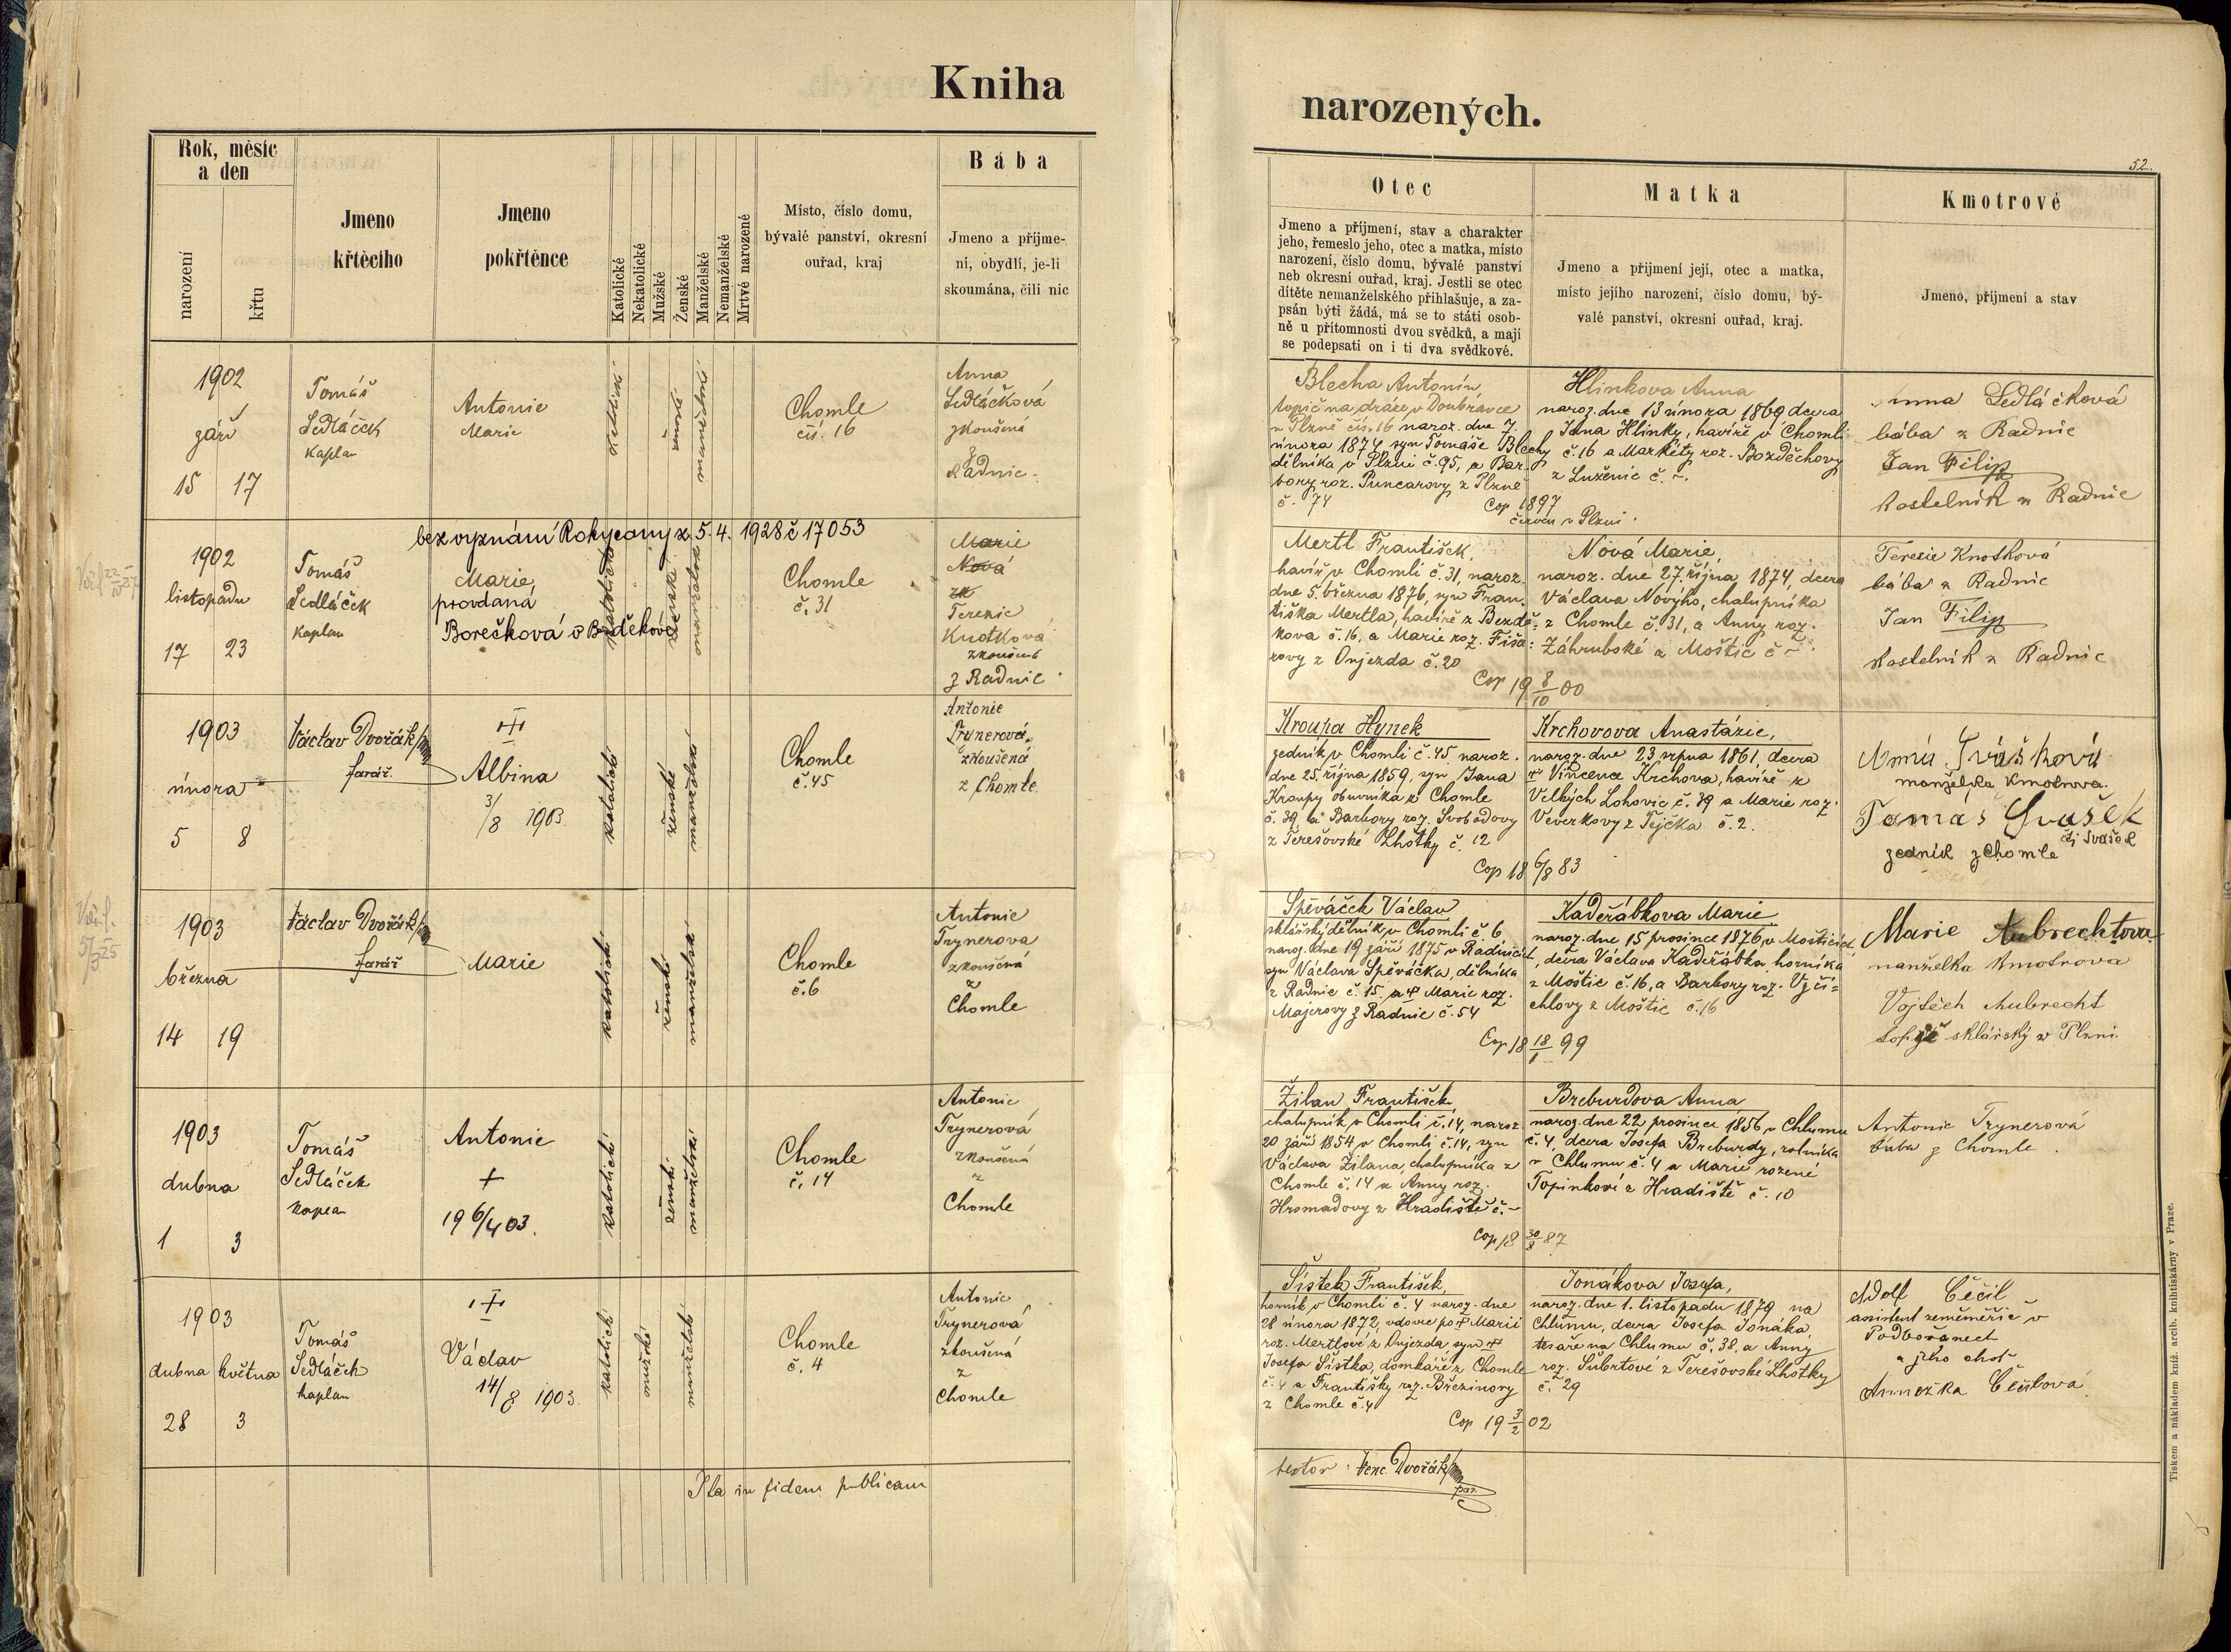 Kniha
narozených.
52.
Rok, měsíc
a den
narození
křtu
Jmeno
křtěcího
Jmeno
pokřtěnce
Katolické
Nekatolické
Mužské
Ženské
Manželské
Nemanželské
Mrtvé narozené
Místo, číslo domu,
bývalé panství, okresní
ouřad, kraj
Bába
Jmeno a příjme-
ní, obydlí, je-li
skoumána, čili nic
Otec
Jmeno a příjmení, stav a charakter
jeho, řemeslo jeho, otec a matka, místo
narození, číslo domu, bývalé panství
neb okresní ouřad, kraj. Jestli se otec
dítěte nemanželského přihlašuje, a za-
psán býti žádá, má se to státi osob-
ně u přítomnosti dvou svědků, a mají
se podepsati on i ti dva svědkové.
Matka
Jmeno a přijmení její, otec a matka,
místo jejího narození, číslo domu, bý-
valé panství, okresní ouřad, kraj.
Kmotrové
Jmeno, příjmení a stav
1902
září
15 17
Tomáš
Sedláček
kaplan
Antonie
Marie
katolické
ženské
manželské
Chomle
čís. 16
Anna
Sedláčková
zkoušená
z
Radnic.
Blecha Antonín
topič na dráze v Doubravce
u Plzně čís. 16 naroz. dne 7.
února 1874 syn Tomáše Blechy
dělníka v Plzni č. 95, a Bar-
bory roz. Puncarovy z Plzně
č. 74
Hlinkova Anna
naroz. dne 13 února 1869 dcera
Jana Hlinky, havíře v Chomli
č. 16 a Markéty roz. Bozděchovy
z Luženic č. ~.
Cop 1897
červen v Plzni.
Anna Sedláčková
bába z Radnic
Jan Filip
kostelník z Radnic
bez vyznání Rokycany z. 5. 4. 1928 č 17053
1902
listopadu
17 23
Tomáš
Sedláček
kaplan
Marie,
provdaná
Borečková v Bezděkově
katolické
ženské
manželské
Chomle
č. 31
Marie
Nová
zk
Terezie
Knotková
zkoušená
z Radnic.
Mertl František,
havíř v Chomli č. 31, naroz.
dne 5. března 1876, syn Fran-
tiška Mertla, havíře z Bezdě-
kova č. 16, a Marie roz. Fiša-
rovy z Onjezda č. 20
Nová Marie,
naroz. dne 27. října 1874, dcera
Václava Nového, chalupníka
z Chomle č. 31, a Anny roz.
Záhrubské z Moštic č ~.
Cop 19 8/10 00
Terezie Knotková
bába z Radnic
Jan Filip
kostelník z Radnic
1903
února
5 8
Václav Dvořák
farář.
Albina
3/8 1903.
katolické
ženské
manželské
Chomle
č. 45
Antonie
Trynerová
zkoušená
z Chomle.
Kroupa Hynek
zedník v Chomli č. 45 naroz.
dne 25 října 1859, syn Jana
Kroupy obuvníka z Chomle
č. 39 a Barbory roz. Svobodovy
z Terešovské Lhotky č. 12
Krchovova Anastázie,
naroz. dne 23 srpna 1861, dcera
Vincence Krchova, havíře z
Velkých Lohovic č. 39 a Marie roz.
Veverkovy z Tejčka č. 2.
Cop 18 6/8 83
manželka kmotrova.
Tomáš Svašek
či Svašek
zedník z Chomle
1903
března
14 19
Václav Dvořák
farář
Marie
katolické
ženské
manželské
Chomle
č. 6
Antonie
Trynerova
zkoušená
z
Chomle
Spěváček Václav
sklářský dělník v Chomli č 6
naroz. dne 19 září 1875 v Radnicích
syn Václava Spěváčka, dělníka
z Radnic č. 15. a † Marie roz.
Majerovy z Radnic č. 54
Kadeřábkova Marie
naroz. dne 15 prosince 1876, v Mošticích
dcera Václava Kadeřábka, horníka
z Moštic č. 16, a Barbory roz. Vyči-
chlovy z Moštic č. 16
Cop 18 18/1 99
Marie Aubrechtova
manželka kmotrova
Vojtěch Aubrecht
topič sklářský v Plzni.
1903
dubna
1 3
Tomáš
Sedláček
kaplan
Antonie
+
19 6/4 03.
katolické
ženské
manželské
Chomle
č. 14
Antonie
Trynerová
zkoušená
z
Chomle
Žilan František
chalupník v Chomli č. 14, naroz
20 září 1854 v Chomli č. 14, syn
Václava Žilana, chalupníka z
Chomle č. 14 a Anny roz.
Hromadovy z Hradiště č. ~
Breburdova Anna
naroz. dne 22 prosince 1856 v Chlumu
č. 4, dcera Josefa Breburdy, rolníka
v Chlumu č. 4 a Marie rozené
Topinkové z Hradiště č. 10
Cop 18 30/8 87
Antonie Trynerová
baba z Chomle.
1903
dubna května
28 3
Tomáš
Sedláček
kaplan
Václav
14/8 1903.
katolické
mužské
manželské
Chomle
č. 4
Antonie
Trynerová
zkoušená
z
Chomle
Šístek František,
horník v Chomli č. 4 naroz. dne
28 února 1872, vdovec po † Marii
roz. Mertlové z Onjezda, syn †
Josefa Šístka, domkáře z Chomle
č. 4 a Františky roz. Březinovy
z Chomle č. 4
Jonákova Josefa,
naroz. dne 1. listopadu 1879 na
Chlumu, dcera Josefa Jonáka,
tesaře na Chlumu č. 38, a Anny
roz. Šubrtové z Terešovské Lhotky
č. 29
Cop 19 3/2 02
Adolf Čečil
assistent zeměměřič v
Podbořanech
a jeho choť
Anežka Čečilová.
Ita in fidem publicam
testor: Venc. Dvořák
par.
Tiskem a nákladem kníž. arcib. knihtiskárny v Praze.